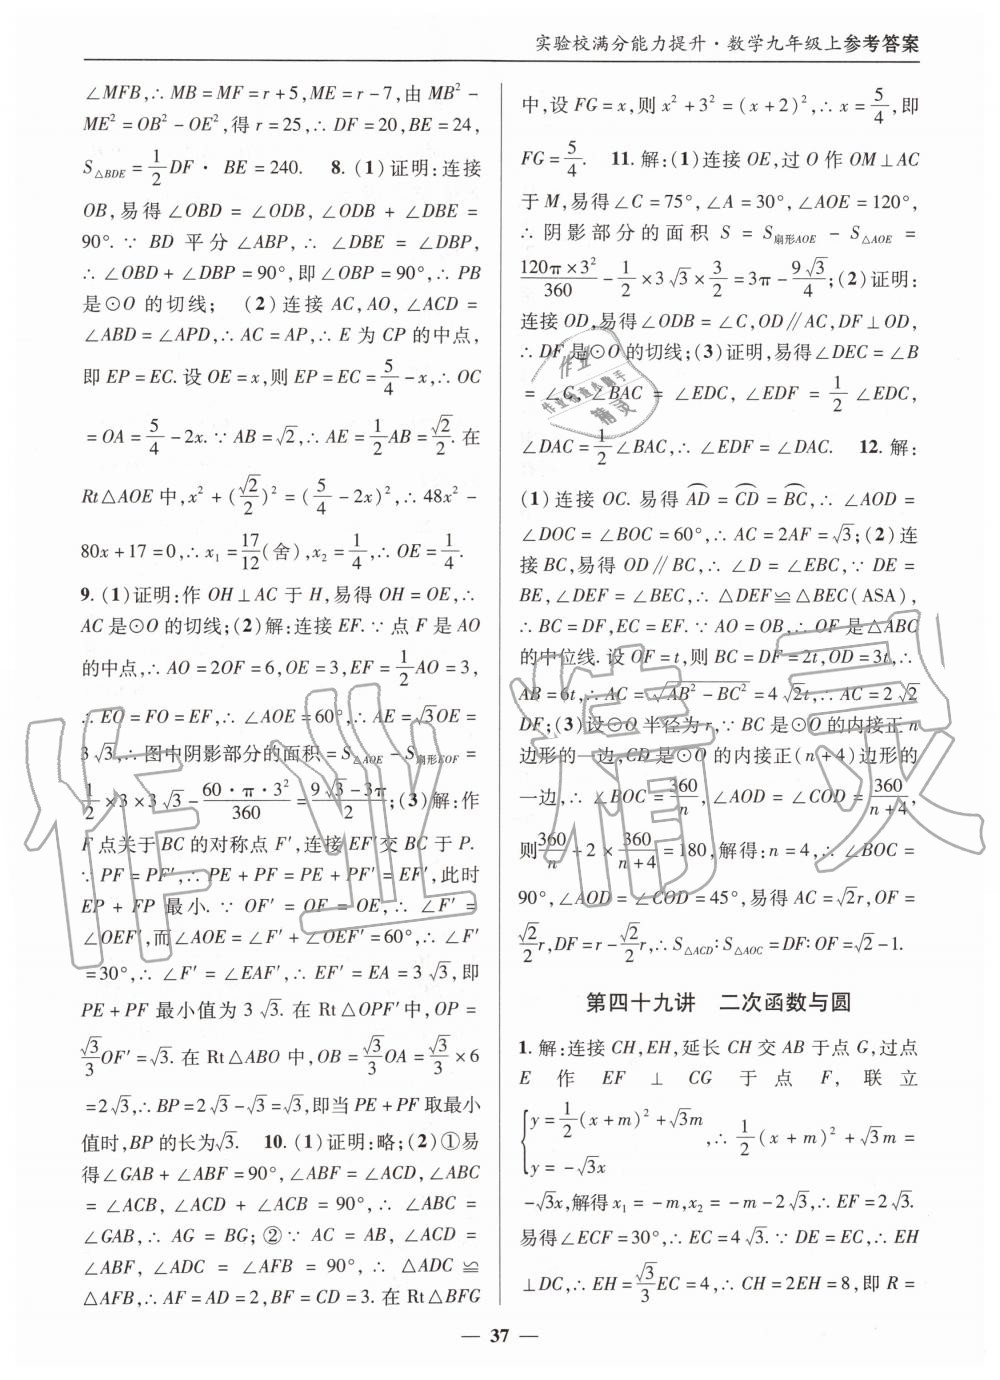 实验校满分能力提升·数学九年级上参考答案
∠MFB,∴MB=MF=r+5,ME=r-7,由 MB²-
ME²=OB²-OE²,得 r=25,∴DF=20,BE=24,
S△BDE=1/2 DF·BE=240. 8.(1)证明:连接
OB,易得∠OBD=∠ODB,∠ODB+∠DBE=
90°.∵BD 平分∠ABP,∴∠DBE=∠DBP,
∴∠OBD+∠DBP=90°,即∠OBP=90°,∴PB
是⊙O 的切线; (2)连接 AC,AO,∠ACD=
∠ABD=∠APD,∴AC=AP,∴E 为 CP 的中点,
即 EP=EC.设 OE=x,则 EP=EC=5/4-x,∴OC
=OA=5/4-2x.∵AB=√2,∴AE=1/2 AB=√2/2.在
Rt△AOE 中,x²+(√2/2)²=(5/4-2x)²,∴48x²-
80x+17=0,∴x₁=17/12(舍),x₂=1/4,∴OE=1/4.
9.(1)证明:作 OH⊥AC 于 H,易得 OH=OE,∴
AC 是⊙O 的切线;(2)解:连接 EF.∵点 F 是 AO
的中点,∴AO=2OF=6,OE=3,EF=1/2 AO=3,
∴EO=FO=EF,∴∠AOE=60°,∴AE=√3OE=
3√3,∴图中阴影部分的面积=S△AOE-S扇形EOF=
1/2×3×3√3-60·π·3²/360=(9√3-3π)/2;(3)解:作
F 点关于 BC 的对称点 F′,连接 EF′交 BC 于 P.
∵PF=PF′,∴PE+PF=PE+PF′=EF′,此时
EP+FP 最小.∵OF′=OF=OE,∴∠F′=
∠OEF′,而∠AOE=∠F′+∠OEF′=60°,∴∠F′
=30°,∴∠F′=∠EAF′,∴EF′=EA=3√3,即
PE+PF 最小值为 3√3.在 Rt△OPF′中,OP=
√3/3 OF′=√3.在 Rt△ABO 中,OB=√3/3 OA=√3/3×6
=2√3,∴BP=2√3-√3=√3,即当 PE+PF 取最小
值时,BP 的长为√3. 10.(1)证明:略;(2)①易
得∠GAB+∠ABF=90°,∠ABF=∠ACD,∠ABC
=∠ACB,∠ACD+∠ACB=90°,∴∠ABC=
∠GAB,∴AG=BG;②∵AC=AB,∠ACD=
∠ABF,∠ADC=∠AFB,∴△ADC≌
△AFB,∴AF=AD=2,BF=CD=3.在 Rt△BFG
中,设 FG=x,则 x²+3²=(x+2)²,∴x=5/4,即
FG=5/4. 11.解:(1)连接 OE,过 O 作 OM⊥AC
于 M,易得∠C=75°,∠A=30°,∠AOE=120°,
∴阴影部分的面积 S=S扇形AOE-S△AOE=
120π×3²/360-1/2×3√3×3/2=3π-9√3/4;(2)证明:
连接 OD,易得∠ODB=∠C,OD∥AC,DF⊥OD,
∴DF 是⊙O 的切线;(3)证明,易得∠DEC=∠B
=∠C,∠BAC=∠EDC,∠EDF=1/2∠EDC,
∠DAC=1/2∠BAC,∴∠EDF=∠DAC. 12.解:
(1)连接 OC.易得 A͡D=C͡D=B͡C,∴∠AOD=
∠DOC=∠BOC=60°,∴AC=2AF=√3;(2)连
接 BC,易得 OD∥BC,∴∠D=∠EBC,∵DE=
BE,∠DEF=∠BEC,∴△DEF≌△BEC(ASA),
∴BC=DF,EC=EF.∵AO=OB,∴OF 是△ABC
的中位线.设 OF=t,则 BC=DF=2t,OD=3t,∴
AB=6t,∴AC=√(AB²-BC²)=4√2t,∴AC=2√2
DF;(3)设⊙O 半径为 r,∵BC 是⊙O 的内接正 n
边形的一边,CD 是⊙O 的内接正(n+4)边形的
一边,∴∠BOC=360/n,∠AOD=∠COD=360/(n+4),
则360/n+2×360/(n+4)=180,解得:n=4,∴∠BOC=
90°,∠AOD=∠COD=45°,易得 AC=√2r,OF=
√2/2 r,DF=r-√2/2 r,∴S△ACD∶S△AOC=DF∶OF=√2-1.
第四十九讲 二次函数与圆
1.解:连接 CH,EH,延长 CH 交 AB 于点 G,过点
E 作 EF⊥CG 于点 F,联立
{y=1/2(x+m)²+√3m
y=-√3x ,∴1/2(x+m)²+√3m=
-√3x,解得 x₁=-m,x₂=-m-2√3,∴EF=2√3.
易得∠ECF=30°,∴EC=4√3.∵DE=EC,∴EH
⊥DC,∴EH=√3/3 EC=4,∴CH=2EH=8,即 R=
— 37 —
作业精灵
作业
作业检查小助手
精灵